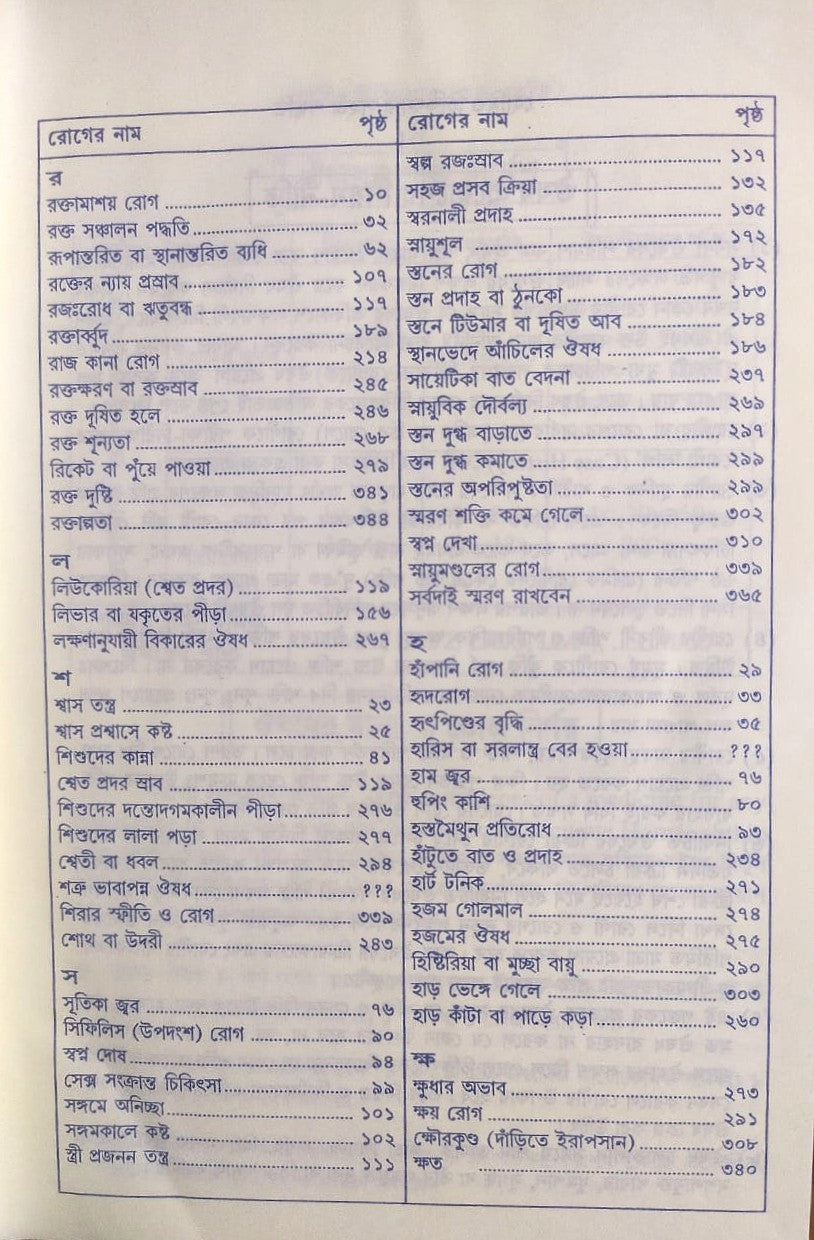 রোগের নাম পৃষ্ঠ
র
রক্তামাশয় রোগ ........................ ১০
রক্ত সঞ্চালন পদ্ধতি........................ ৩২
রূপান্তরিত বা স্থানান্তরিত ব্যধি ............... ৬২
রক্তের ন্যায় প্রস্রাব ........................ ১০৭
রজঃরোধ বা ঋতুবন্ধ ........................ ১১৭
রক্তার্ব্বুদ........................ ১৮৯
রাজ কানা রোগ ........................ ২১৪
রক্তক্ষরণ বা রক্তস্রাব ........................ ২৪৫
রক্ত দূষিত হলে ........................ ২৪৬
রক্ত শূন্যতা ........................ ২৬৮
রিকেট বা পুঁয়ে পাওয়া........................ ২৭৯
রক্ত দুষ্টি ........................৩৪১
রক্তাল্পতা ........................৩৪৪
ল
লিউকোরিয়া (শ্বেত প্রদর) ............... ১১৯
লিভার বা যকৃতের পীড়া............... ১৫৬
লক্ষণানুযায়ী বিকারের ঔষধ ............... ২৬৭
শ
শ্বাস তন্ত্র ........................ ২৩
শ্বাস প্রশ্বাসে কষ্ট ........................ ২৫
শিশুদের কান্না ........................ ৪১
শ্বেত প্রদর স্রাব ........................ ১১৯
শিশুদের দন্তোদগমকালীন পীড়া............ ২৭৬
শিশুদের লালা পড়া ........................ ২৭৭
শ্বেতী বা ধবল........................ ২৯৪
শত্রু ভাবাপন্ন ঔষধ ........................ ???
শিরার স্ফীতি ও রোগ ........................ ৩৩৯
শোথ বা উদরী ........................ ২৪৩
স
সূতিকা জ্বর ........................ ৭৬
সিফিলিস (উপদংশ) রোগ ............... ৯০
স্বপ্ন দোষ ........................ ৯৪
সেক্স সংক্রান্ত চিকিৎসা........................ ৯৯
সঙ্গমে অনিচ্ছা........................ ১০১
সঙ্গমকালে কষ্ট ........................ ১০২
স্ত্রী প্রজনন তন্ত্র ........................ ১১১
রোগের নাম পৃষ্ঠ
স্বল্প রজঃস্রাব ........................ ১১৭
সহজ প্রসব ক্রিয়া ........................ ১৩২
স্বরনালী প্রদাহ ........................ ১৩৫
স্নায়ুশূল ........................ ১৭২
স্তনের রোগ ........................ ১৮২
স্তন প্রদাহ বা ঠুনকো ........................ ১৮৩
স্তনে টিউমার বা দূষিত আব ............... ১৮৪
স্থানভেদে আঁচিলের ঔষধ ............... ১৮৬
সায়েটিকা বাত বেদনা ............... ২৩৭
স্নায়ুবিক দৌর্বল্য ........................ ২৬৯
স্তন দুগ্ধ বাড়াতে ........................ ২৯৭
স্তন দুগ্ধ কমাতে ........................ ২৯৯
স্তনের অপরিপুষ্টতা ........................ ২৯৯
স্মরণ শক্তি কমে গেলে ............... ৩০২
স্বপ্ন দেখা ........................ ৩১০
স্নায়ুমণ্ডলের রোগ........................ ৩৩৯
সর্বদাই স্মরণ রাখবেন ............... ৩৬৫
হ
হাঁপানি রোগ ........................ ২৯
হৃদরোগ ........................ ৩৩
হৃৎপিণ্ডের বৃদ্ধি ........................ ৩৫
হারিস বা সরলান্ত্র বের হওয়া............ ???
হাম জ্বর ........................ ৭৬
হুপিং কাশি ........................ ৮০
হস্তমৈথুন প্রতিরোধ ........................ ৯৩
হাঁটুতে বাত ও প্রদাহ ............... ২৩৪
হার্ট টনিক........................ ২৭১
হজম গোলমাল ........................ ২৭৪
হজমের ঔষধ ........................ ২৭৫
হিষ্টিরিয়া বা মুচ্ছা বায়ু ............... ২৯০
হাড় ভেঙ্গে গেলে ........................ ৩০৩
হাড় কাঁটা বা পাড়ে কড়া ............... ২৬০
ক্ষ
ক্ষুধার অভাব ........................ ২৭৩
ক্ষয় রোগ ........................ ২৯১
ক্ষৌরকুণ্ড (দাঁড়িতে ইরাপসান) ............ ৩০৮
ক্ষত ........................ ৩৪০